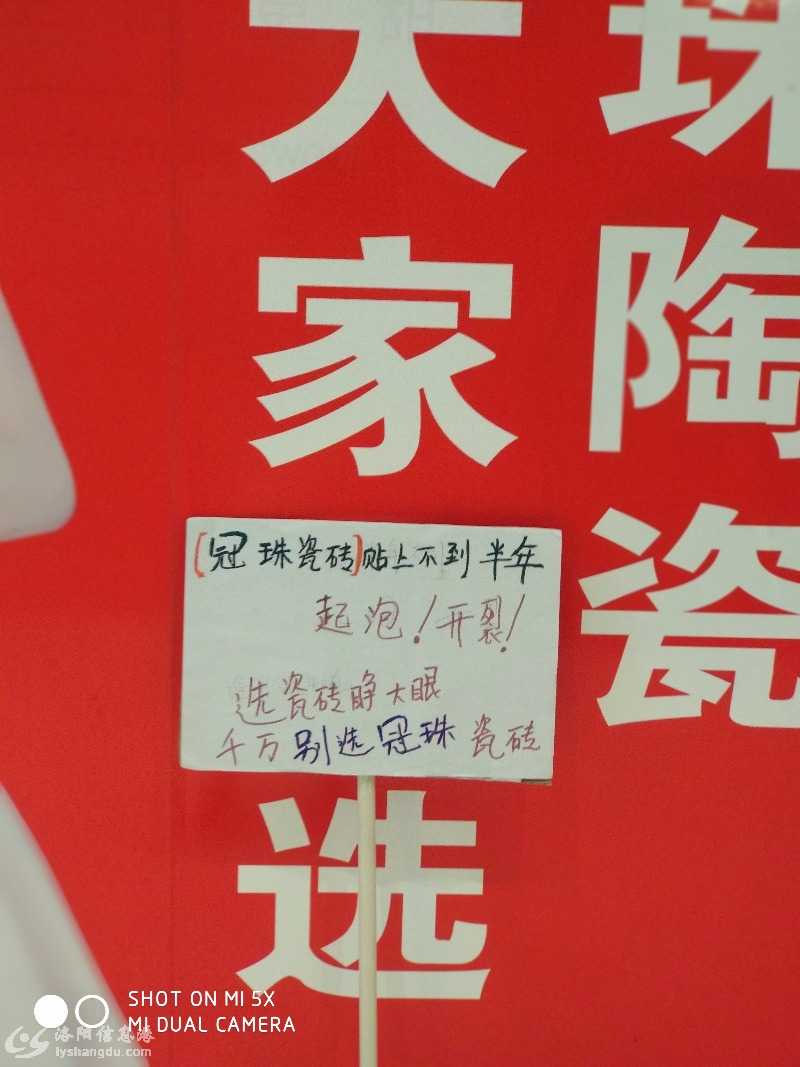 珠陶瓷
大家
选
[冠珠瓷砖]贴上不到半年
起泡!开裂!
选瓷砖睁大眼
千万别选冠珠瓷砖
SHOT ON MI 5X
MI DUAL CAMERA
洛阳信息港
lyshangdu.com